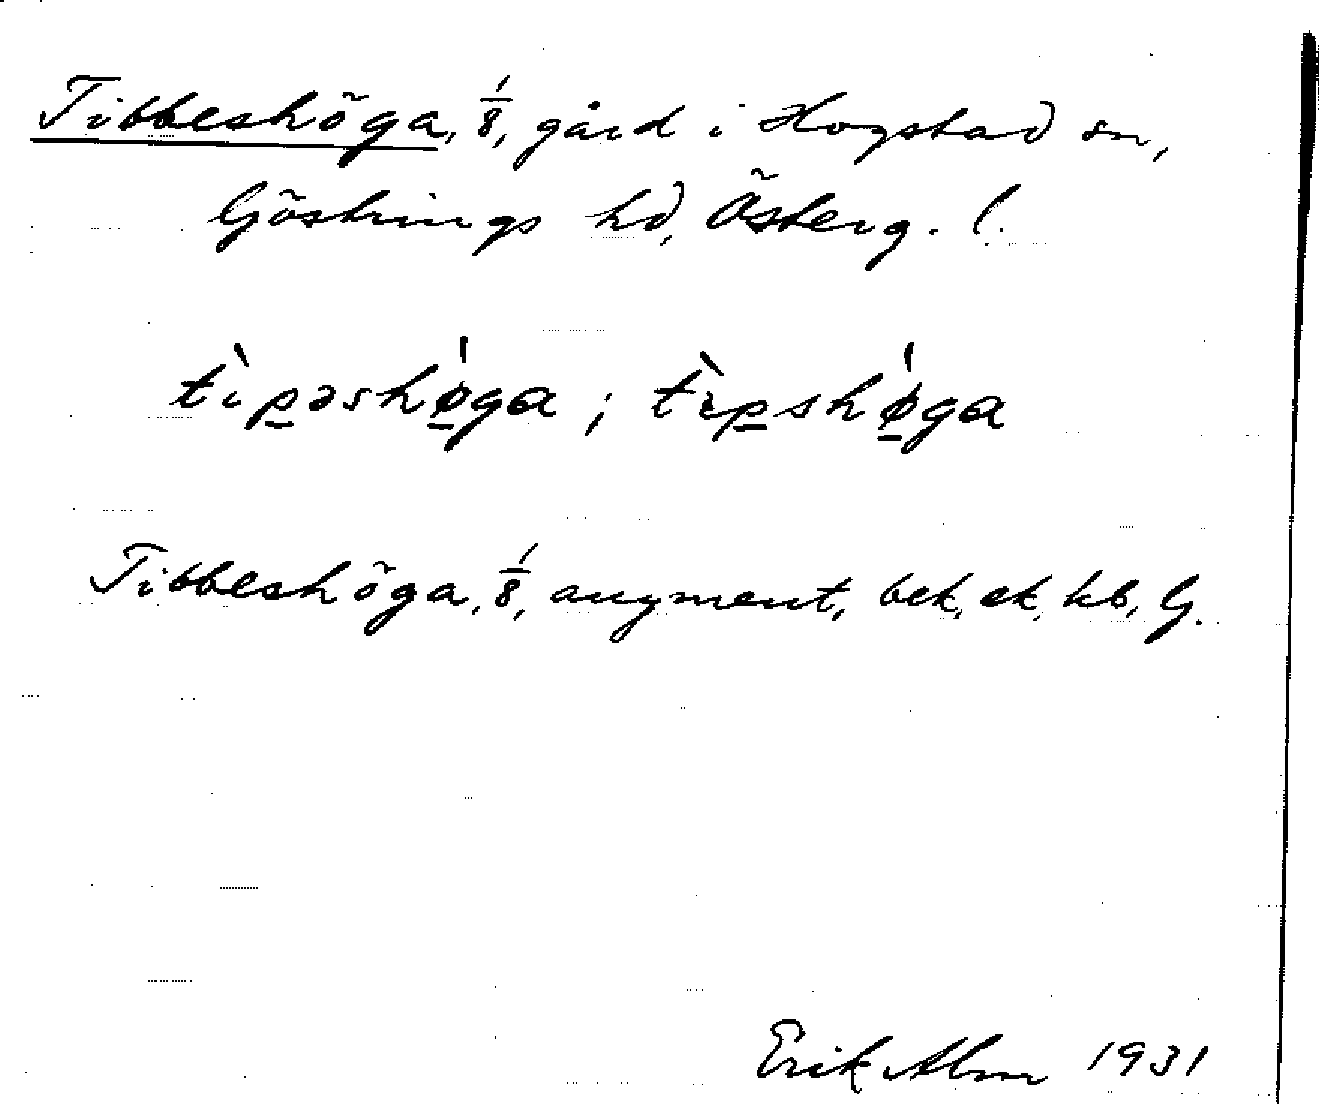 Tibbeshöga, 1/8, gård i Hogstad sn,
Göstrings hd, Österg. l.
tìpəshø̱̍ga ; tìpshø̱̍ga
Tibbeshöga, 1/8, augment, bek, ek, kb, G.
Erik Alm 1931